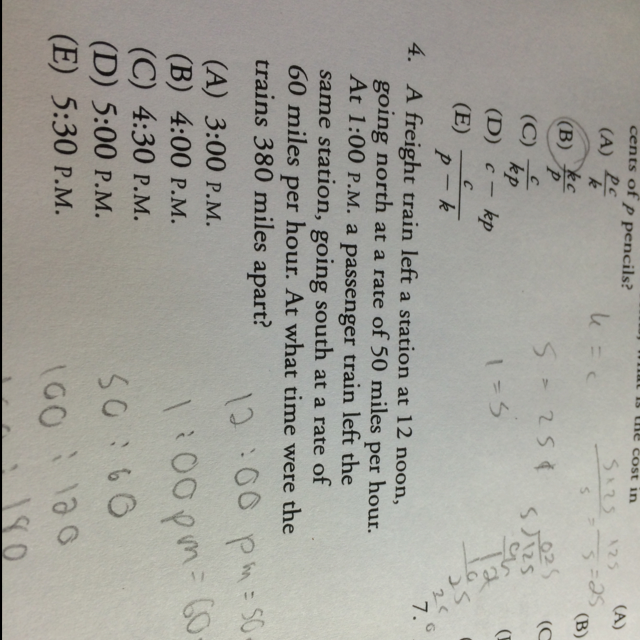 cents of p pencils?
(A) pc/k
(B) kc/p
(C) c/kp
(D) c – kp
(E) c/p – k
4. A freight train left a station at 12 noon,
going north at a rate of 50 miles per hour.
At 1:00 P.M. a passenger train left the
same station, going south at a rate of
60 miles per hour. At what time were the
trains 380 miles apart?
(A) 3:00 P.M.
(B) 4:00 P.M.
(C) 4:30 P.M.
(D) 5:00 P.M.
(E) 5:30 P.M.
k = c
5 = 25¢
1 = 5
12:00 pm = 50
1:00 pm = 60
50:60
100:120
(A)
(B)
(C
7.